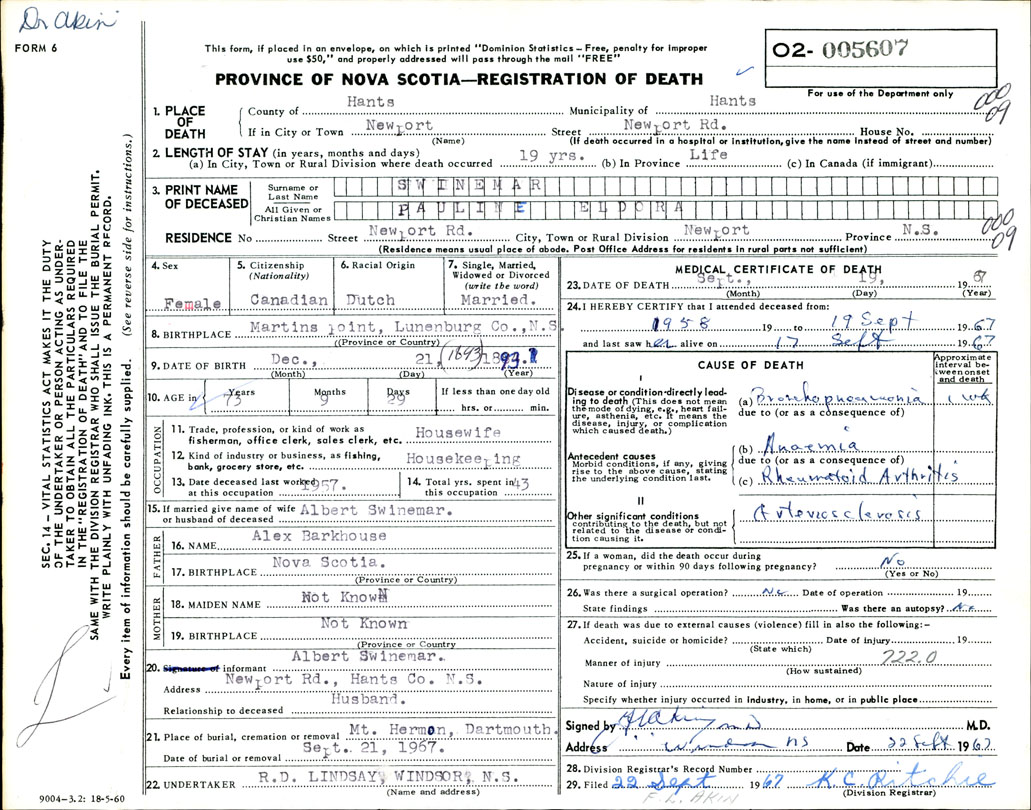 Dr Akin
FORM 6
This form, if placed in an envelope, on which is printed "Dominion Statistics – Free, penalty for improper
use $50," and properly addressed will pass through the mail "FREE"
O2- 005607
For use of the Department only
PROVINCE OF NOVA SCOTIA—REGISTRATION OF DEATH
000
09
1. PLACE OF DEATH
County of Hants Municipality of Hants
If in City or Town Newport Street Newport Rd. House No.
(Name) (If death occurred in a hospital or institution, give the name instead of street and number)
2. LENGTH OF STAY (in years, months and days)
(a) In City, Town or Rural Division where death occurred 19 yrs. (b) In Province Life (c) In Canada (if immigrant)
3. PRINT NAME OF DECEASED
Surname or Last Name SWINEMAR
All Given or Christian Names PAULINE ELDORA
000
09
RESIDENCE No Street Newport Rd. City, Town or Rural Division Newport Province N.S.
(Residence means usual place of abode. Post Office Address for residents in rural parts not sufficient)
4. Sex
Female
5. Citizenship
(Nationality)
Canadian
6. Racial Origin
Dutch
7. Single, Married,
Widowed or Divorced
(write the word)
Married.
8. BIRTHPLACE Martins Point, Lunenburg Co., N.S.
(Province or Country)
9. DATE OF BIRTH Dec., 21, (1893)
(Month) (Day) (Year)
10. AGE in Years 73 Months Days If less than one day old
hrs. or min.
OCCUPATION
11. Trade, profession, or kind of work as
fisherman, office clerk, sales clerk, etc. Housewife
12. Kind of industry or business, as fishing,
bank, grocery store, etc. Housekeeping
13. Date deceased last worked
at this occupation 1957.
14. Total yrs. spent in
this occupation 43
15. If married give name of wife
or husband of deceased Albert Swinemar.
FATHER
16. NAME Alex Barkhouse
17. BIRTHPLACE Nova Scotia.
(Province or Country)
MOTHER
18. MAIDEN NAME Not Known
19. BIRTHPLACE Not Known
(Province or Country
20. Signature of informant Albert Swinemar.
Address Newport Rd., Hants Co. N.S.
Relationship to deceased Husband.
21. Place of burial, cremation or removal Mt. Hermon, Dartmouth.
Date of burial or removal Sept. 21, 1967.
22. UNDERTAKER R.D. LINDSAY, WINDSOR, N.S.
(Name and address)
9004–3.2: 18-5-60
MEDICAL CERTIFICATE OF DEATH
23. DATE OF DEATH Sept., 19, 1967
(Month) (Day) (Year)
24. I HEREBY CERTIFY that I attended deceased from:
1958 19 to 19 Sept 1967
and last saw her alive on 17 Sept 1967
CAUSE OF DEATH
Approximate
interval be-
tween onset
and death
I
Disease or condition directly lead-
ing to death (This does not mean
the mode of dying, e.g., heart fail-
ure, asthenia, etc. It means the
disease, injury, or complication
which caused death.)
(a) Bronchopneumonia 1 wk
due to (or as a consequence of)
Antecedent causes
Morbid conditions, if any, giving
rise to the above cause, stating
the underlying condition last.
(b) Anaemia
due to (or as a consequence of)
(c) Rheumatoid Arthritis
II
Other significant conditions
contributing to the death, but not
related to the disease or condi-
tion causing it.
Arteriosclerosis
25. If a woman, did the death occur during
pregnancy or within 90 days following pregnancy? No
(Yes or No)
26. Was there a surgical operation? No Date of operation 19
State findings Was there an autopsy? No
27. If death was due to external causes (violence) fill in also the following:–
Accident, suicide or homicide? Date of injury 19
(State which)
722.0
Manner of injury
(How sustained)
Nature of injury
Specify whether injury occurred in industry, in home, or in public place
Signed by M.D.
Address Windsor NS Date 22 Sept 1967
28. Division Registrar's Record Number
29. Filed 22 Sept 1967 K C Ritchie
(Division Registrar)
F. L. AKIN
SEC. 14 – VITAL STATISTICS ACT MAKES IT THE DUTY
OF THE UNDERTAKER OR PERSON ACTING AS UNDER-
TAKER TO OBTAIN ALL THE PARTICULARS REQUIRED
IN THE "REGISTRATION OF DEATH" AND TO FILE THE
SAME WITH THE DIVISION REGISTRAR WHO SHALL ISSUE THE BURIAL PERMIT.
WRITE PLAINLY WITH UNFADING INK. THIS IS A PERMANENT RECORD.
Every item of information should be carefully supplied. (See reverse side for instructions.)